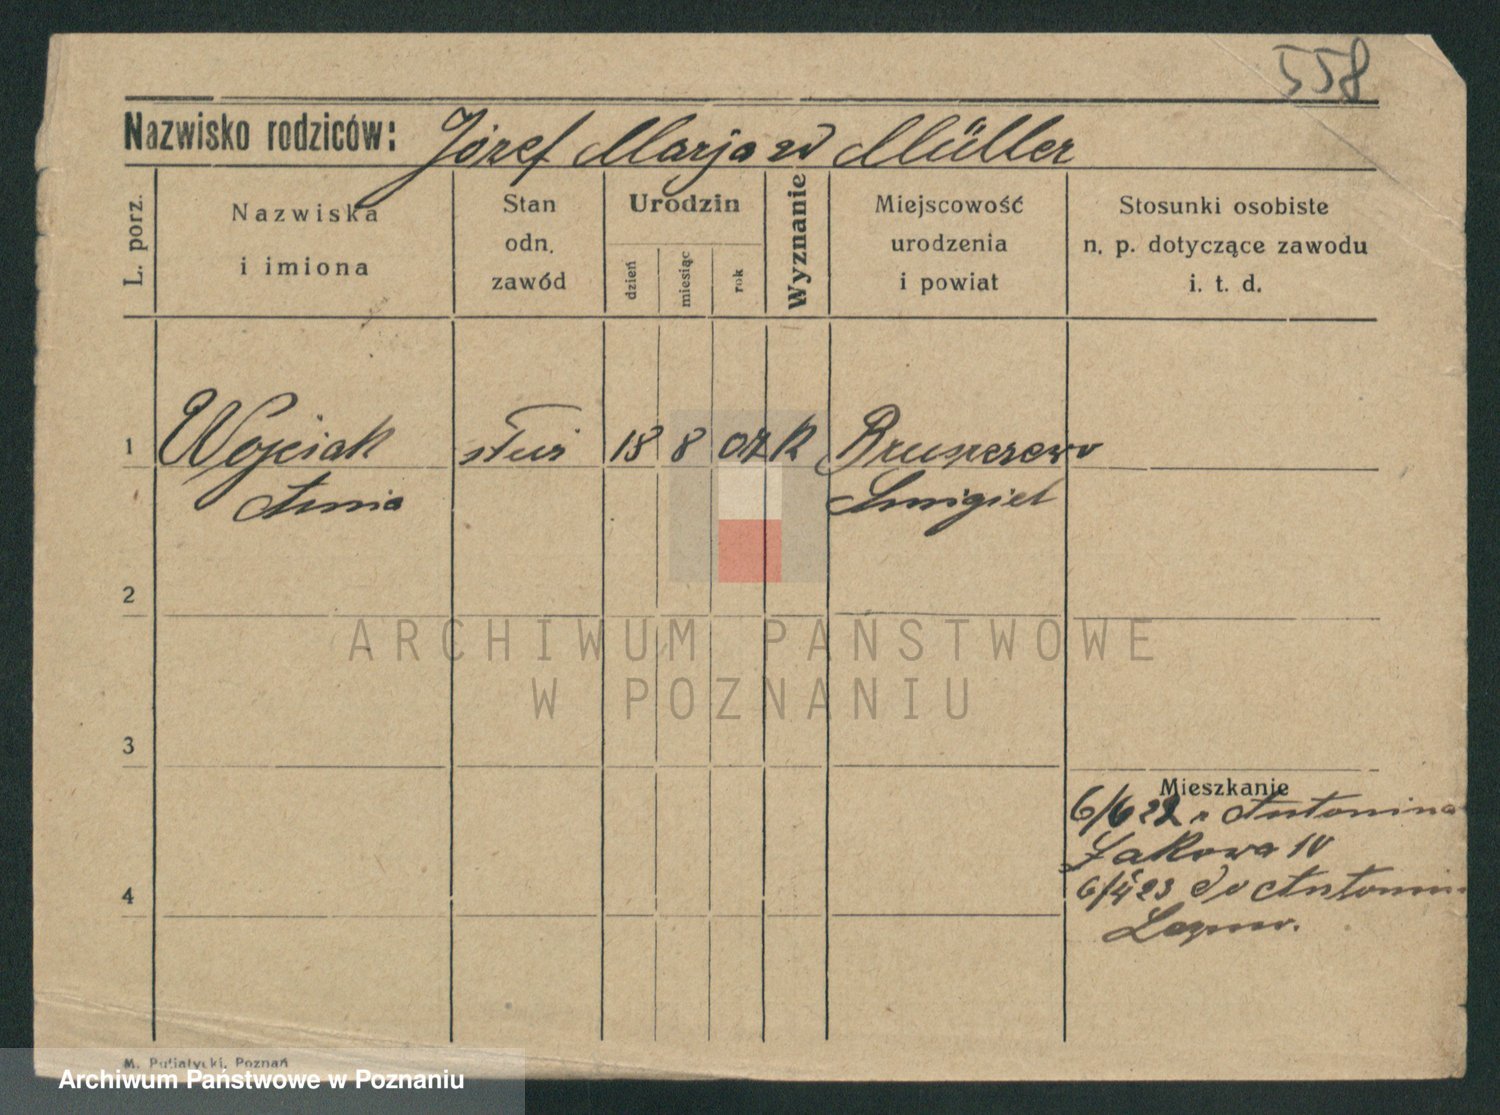 558
Nazwisko rodziców: Józef Marja zd Müller
L. porz.
Nazwiska
i imiona
Stan
odn.
zawód
Urodzin
dzień
miesiąc
rok
Wyznanie
Miejscowość
urodzenia
i powiat
Stosunki osobiste
n. p. dotyczące zawodu
i. t. d.
1 Wojciak służ 18 8 07 k Bruszczewo
Śmigiel
2
ARCHIWUM PAŃSTWOWE
W POZNANIU
3
Mieszkanie
6/6 22 Antonina
Łąkowa IV
4
6/4 23 do Antonin
M. Putiatycki, Poznań
Archiwum Państwowe w Poznaniu